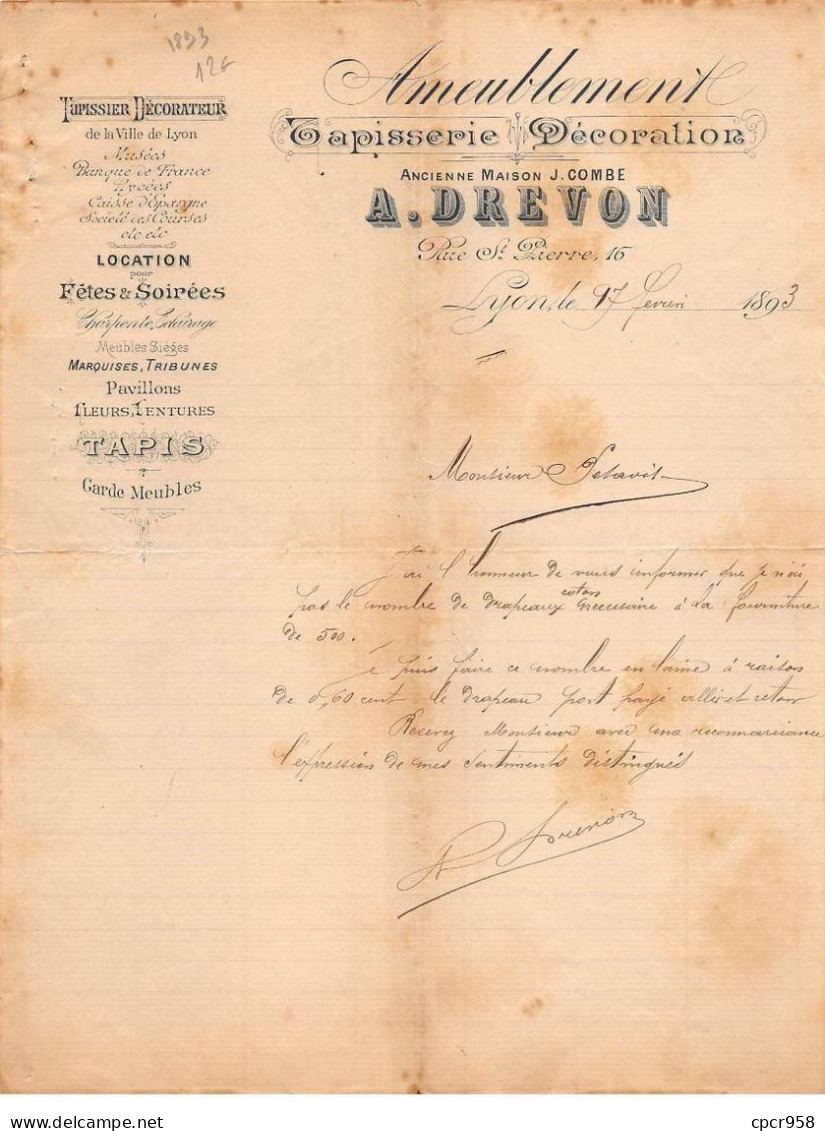 1893
12€
TAPISSIER DÉCORATEUR
de la Ville de Lyon
Musées
Banque de France
Lycées
Caisse d'Epargne
Société des Courses
etc etc
LOCATION
pour
Fêtes & Soirées
Charpente, Eclairage
Meubles Sièges
MARQUISES, TRIBUNES
Pavillons
FLEURS, TENTURES
TAPIS
Garde Meubles
Ameublement
Tapisserie Décoration
ANCIENNE MAISON J. COMBE
A. DREVON
Rue St Pierre, 16
Lyon, le 17 fevrier 1893
Monsieur
J'ai l'honneur de vous informer que je n'ai
pas le nombre de drapeaux coton necessaire à la fourniture
de 500.
Je puis faire ce nombre en laine à raison
de 0,60 cent le drapeau port payé aller et retour
Recevez Monsieur avec ma reconnaissance
l'expression de mes sentiments distingués
A Drevon
cpcr958